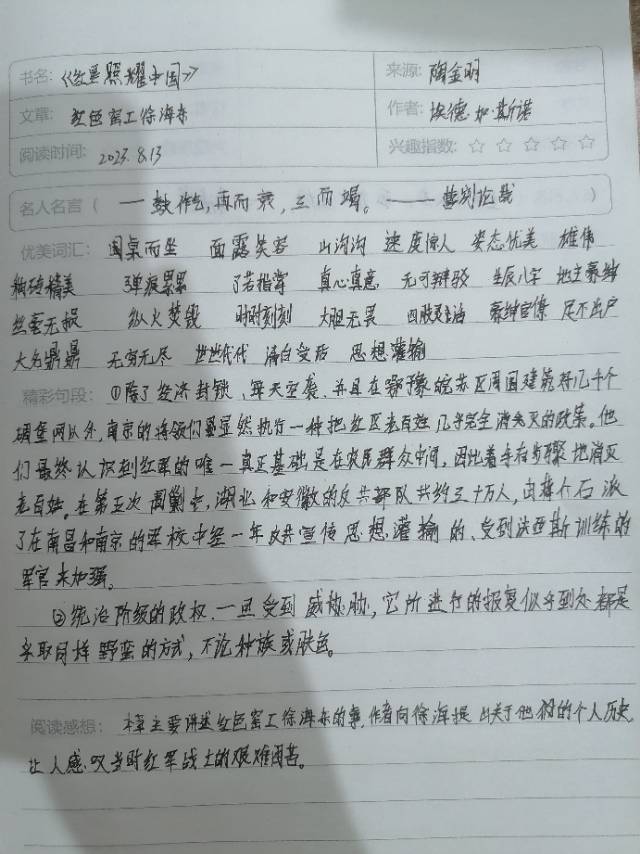 书名: 《红星照耀中国》 来源: 陶金明
文章: 红色窑工徐海东 作者: 埃德加·斯诺
阅读时间: 2023.8.13 兴趣指数: ☆ ☆ ☆ ☆ ☆
名人名言 ( 一鼓作气,再而衰,三而竭。——曹刿论战 )
优美词汇: 围桌而坐 面露笑容 山沟沟 速度惊人 姿态优美 雄伟
精美 弹痕累累 了若指掌 真心真意 无可辩驳 生辰八字 地主豪绅
丝毫无损 纵火焚毁 时时刻刻 大胆无畏 四肢 豪绅官僚 足不出户
大名鼎鼎 无穷无尽 世世代代 清白 思想灌输
精彩句段: ①除了经济封锁、每天空袭、并且在鄂豫皖苏区周围建筑好几千个
碉堡网以外,南京的将领们显然执行一种把红区老百姓几乎完全消灭的政策。他
们最终认识到红军的唯一真正基础是在农民群众中间,因此着手有步骤地消灭
老百姓。在第五次围剿中,湖北和安徽的反共部队共约三十万人,由蒋介石派
了在南昌和南京的军校中经一年反共宣传思想灌输的、受到法西斯训练的
军官来加强。
②统治阶级的政权,一旦受到威胁,它所进行的报复似乎到处都是
采取同样野蛮的方式,不论种族或肤色。
阅读感想: 本章主要讲述红色窑工徐海东的事,作者向徐海提出关于他的个人历史,
让人感叹当时红军战士的艰难困苦。